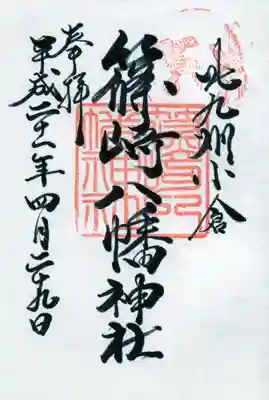 北九州小倉
篠崎八幡神社
奉拝
平成二十一年四月二十九日